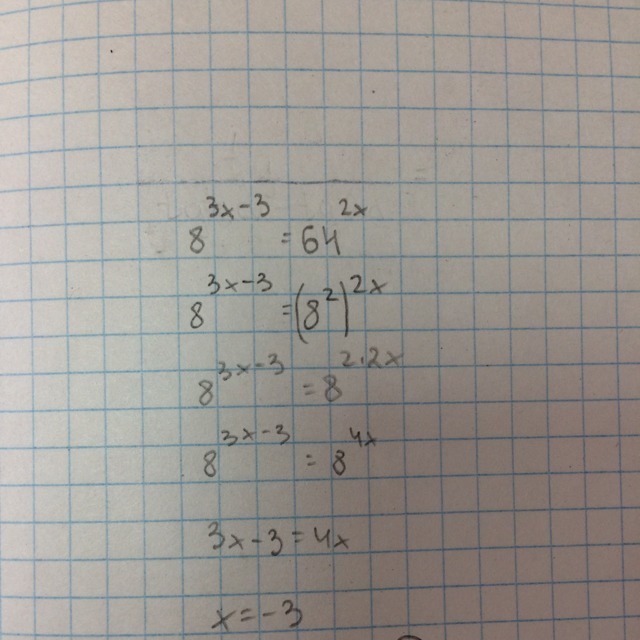 8^{3x-3} = 64^{2x}
8^{3x-3} = (8^2)^{2x}
8^{3x-3} = 8^{2·2x}
8^{3x-3} = 8^{4x}
3x-3=4x
x=-3